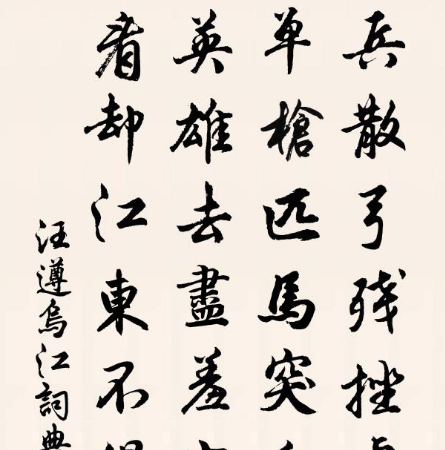 兵散弓残挫
单槍匹馬突
英雄去盡羞
看却江東不
汪遵烏江詞典